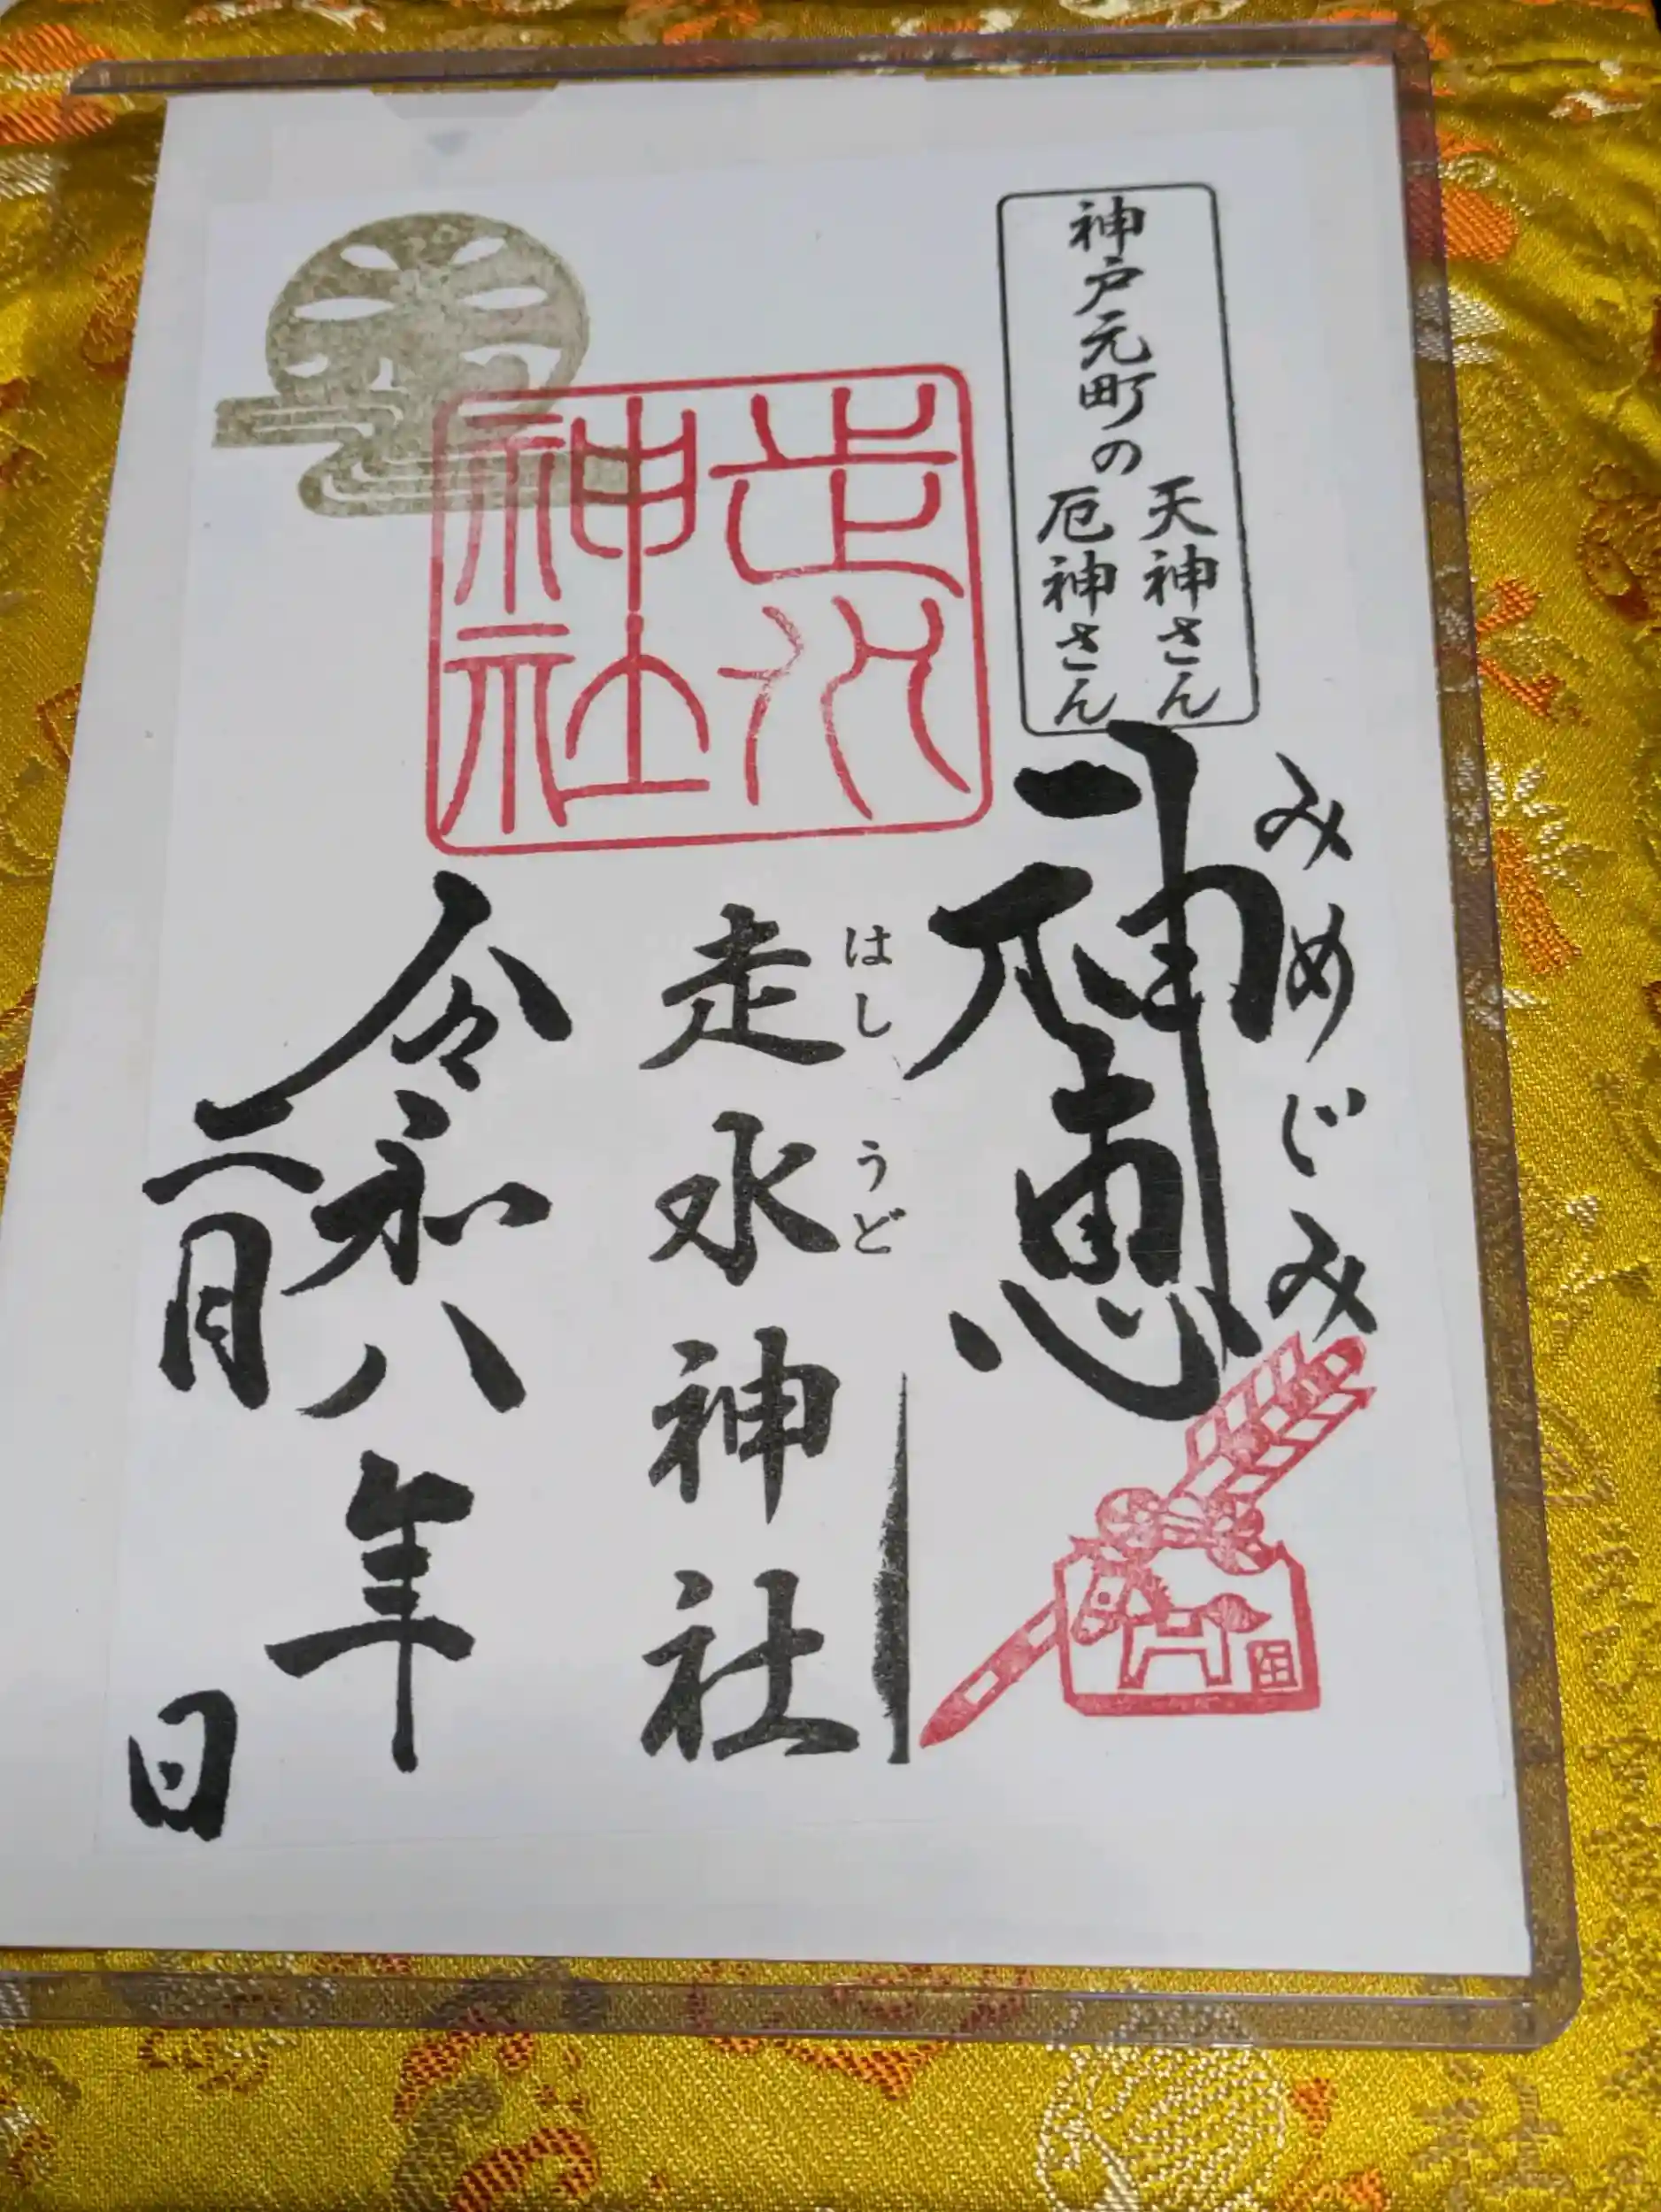 神戸元町の
天神さん
厄神さん
みめぐみ
神恵
はしうど
走水神社
走水神社
令和八年
二月
日